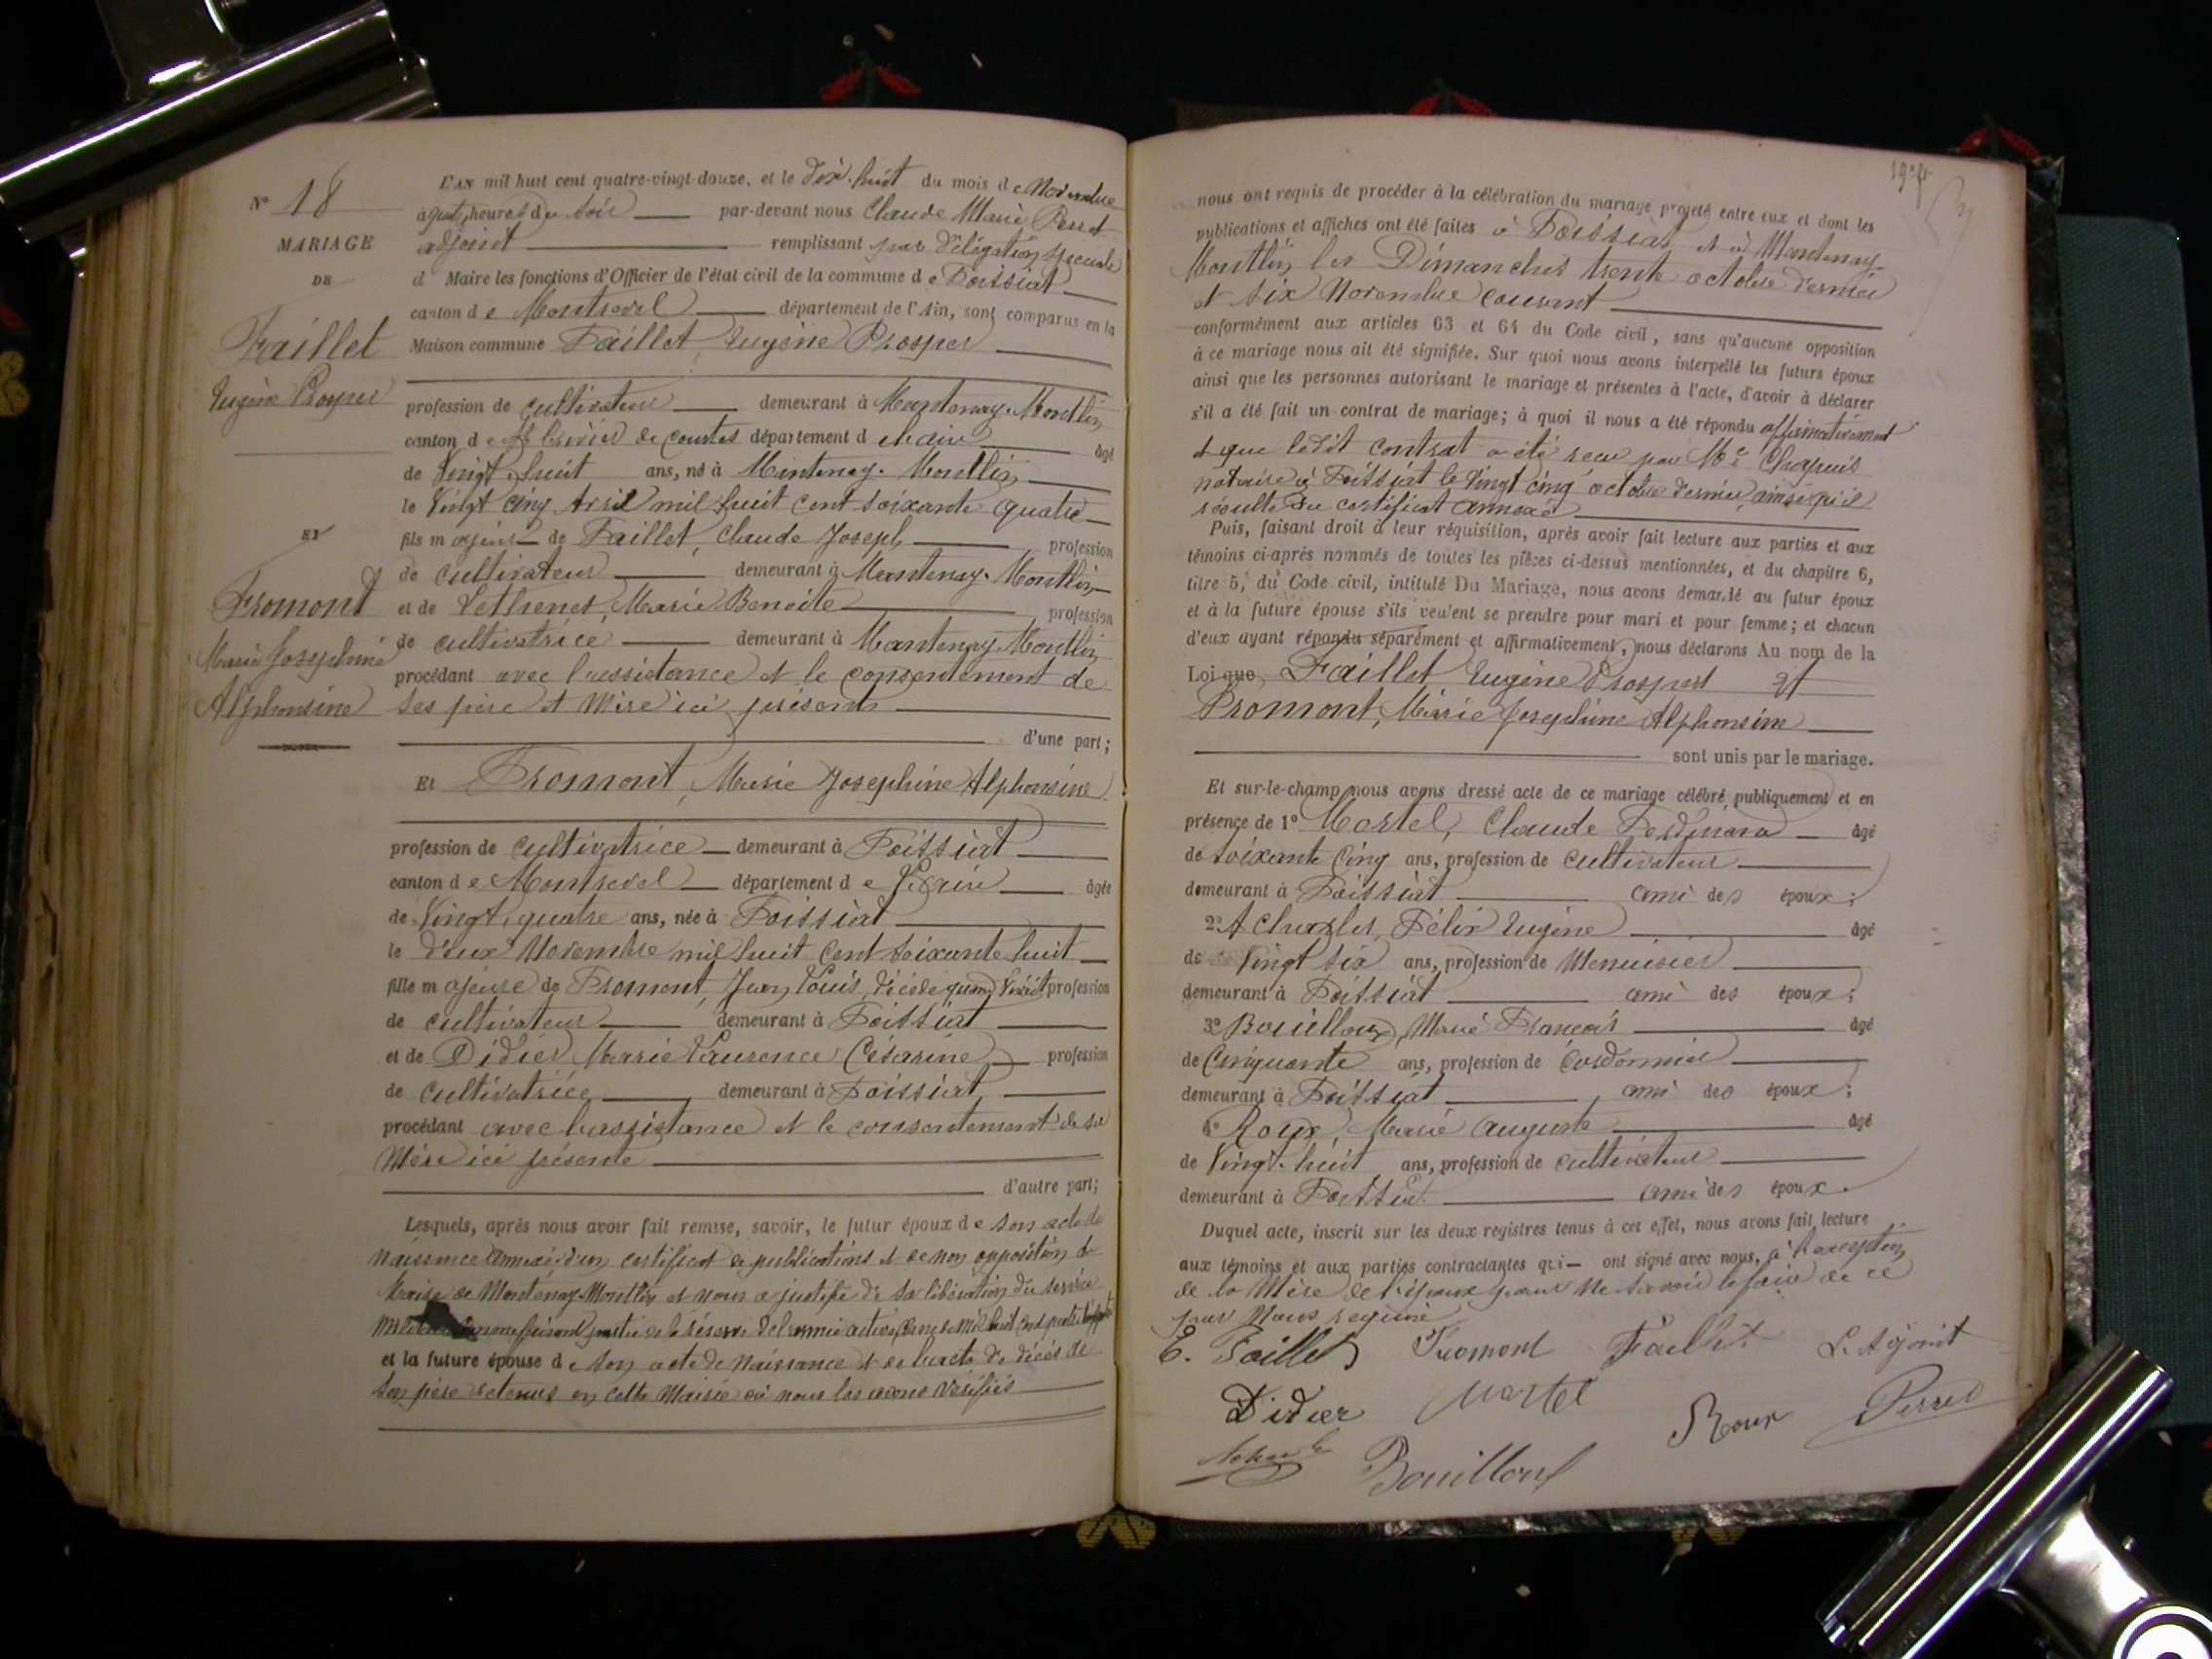 N° 18
MARIAGE
DE
Faillet
Eugène Prosper
ET
Fromont
Marie Josephine
Alphonsine
L'AN mil huit cent quatre-vingt-douze, et le dix-huit du mois de Novembre
à quatre heures du soir par-devant nous Claude Marie Perret
adjoint remplissant par délégation spéciale
d Maire les fonctions d'Officier de l'état civil de la commune de Foissiat
canton de Montrevel département de l'Ain, sont comparus en la
Maison commune Faillet, Eugène Prosper
profession de cultivateur demeurant à Mantenay-Montlin
canton de St Trivier de Courtes département de l'ain âgé
de Vingt huit ans, né à Mantenay-Montlin
le Vingt cinq Avril mil huit cent soixante quatre
fils majeur de Faillet, Claude Joseph profession
de cultivateur demeurant à Mantenay-Montlin
et de Lethenet, Marie Benoite profession
de cultivatrice demeurant à Mantenay-Montlin
procédant avec l'assistance et le consentement de
ses père et mère ici présents
d'une part;
Et Fromont, Marie Josephine Alphonsine
profession de cultivatrice demeurant à Foissiat
canton de Montrevel département de l'ain âgée
de Vingt-quatre ans, née à Foissiat
le deux Novembre mil huit cent soixante huit
fille majeure de Fromont, Jean Louis, décédé quand vivait profession
de cultivateur demeurant à Foissiat
et de Didier Marie Laurence Césarine profession
de cultivatrice demeurant à Foissiat
procédant avec l'assistance et le consentement de sa
Mère ici présente
d'autre part;
Lesquels, après nous avoir fait remise, savoir, le futur époux de son acte de
naissance annexé d'un certificat de publications et de non opposition du
Maire de Mantenay-Montlin et nous a justifié de sa libération du service
partie de la réserve de l'armée active
et la future épouse de son acte de naissance et de l'acte de décès de
son père retenus en cette Mairie où nous les avons vérifiés
nous ont requis de procéder à la célébration du mariage projeté entre eux et dont les
publications et affiches ont été faites à Foissiat et à Mantenay
Montlin les Dimanches trente octobre dernier
et six Novembre courant
conformément aux articles 63 et 64 du Code civil, sans qu'aucune opposition
à ce mariage nous ait été signifiée. Sur quoi nous avons interpellé les futurs époux
ainsi que les personnes autorisant le mariage et présentes à l'acte, d'avoir à déclarer
s'il a été fait un contrat de mariage; à quoi il nous a été répondu affirmativement
et que ledit contrat a été reçu par Me Chapuis
notaire à Foissiat le Vingt cinq octobre dernier, ainsi qu'il
résulte du certificat annexé
Puis, faisant droit à leur réquisition, après avoir fait lecture aux parties et aux
témoins ci-après nommés de toutes les pièces ci-dessus mentionnées, et du chapitre 6,
titre 5, du Code civil, intitulé Du Mariage, nous avons demandé au futur époux
et à la future épouse s'ils veulent se prendre pour mari et pour femme; et chacun
d'eux ayant répondu séparément et affirmativement, nous déclarons Au nom de la
Loi que Faillet Eugène Prosper et
Fromont, Marie Josephine Alphonsine
sont unis par le mariage.
Et sur-le-champ nous avons dressé acte de ce mariage célébré publiquement et en
présence de 1° Martel, Claude Ferdinand âgé
de soixante cinq ans, profession de cultivateur
demeurant à Foissiat ami des époux;
2° Acharles, Félix Eugène âgé
de Vingt six ans, profession de Menuisier
demeurant à Foissiat ami des époux;
3° Bouilloux, Marie François âgé
de Cinquante ans, profession de Cordonnier
demeurant à Foissiat, ami des époux;
Roux, Marie Auguste âgé
de Vingt-huit ans, profession de cultivateur
demeurant à Foissiat ami des époux.
Duquel acte, inscrit sur les deux registres tenus à cet effet, nous avons fait lecture
aux témoins et aux parties contractantes qui ont signé avec nous, à l'exception
de la Mère de l'époux pour ne savoir le faire de ce
par Nous requise
E. Faillet Fromont Faillet L'Adjoint
Didier Martel Roux Perret
Bouilloux